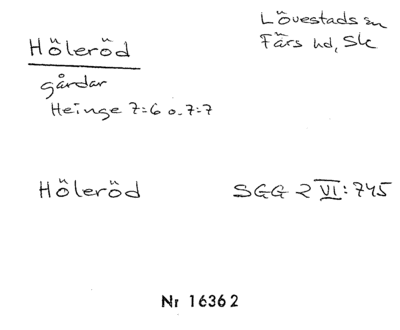 Höleröd
Lövestads sn
Färs hd, Sk
gårdar
Heinge 7:6 o. 7:7
Höleröd
SGG 2 VI: 745
Nr 16362